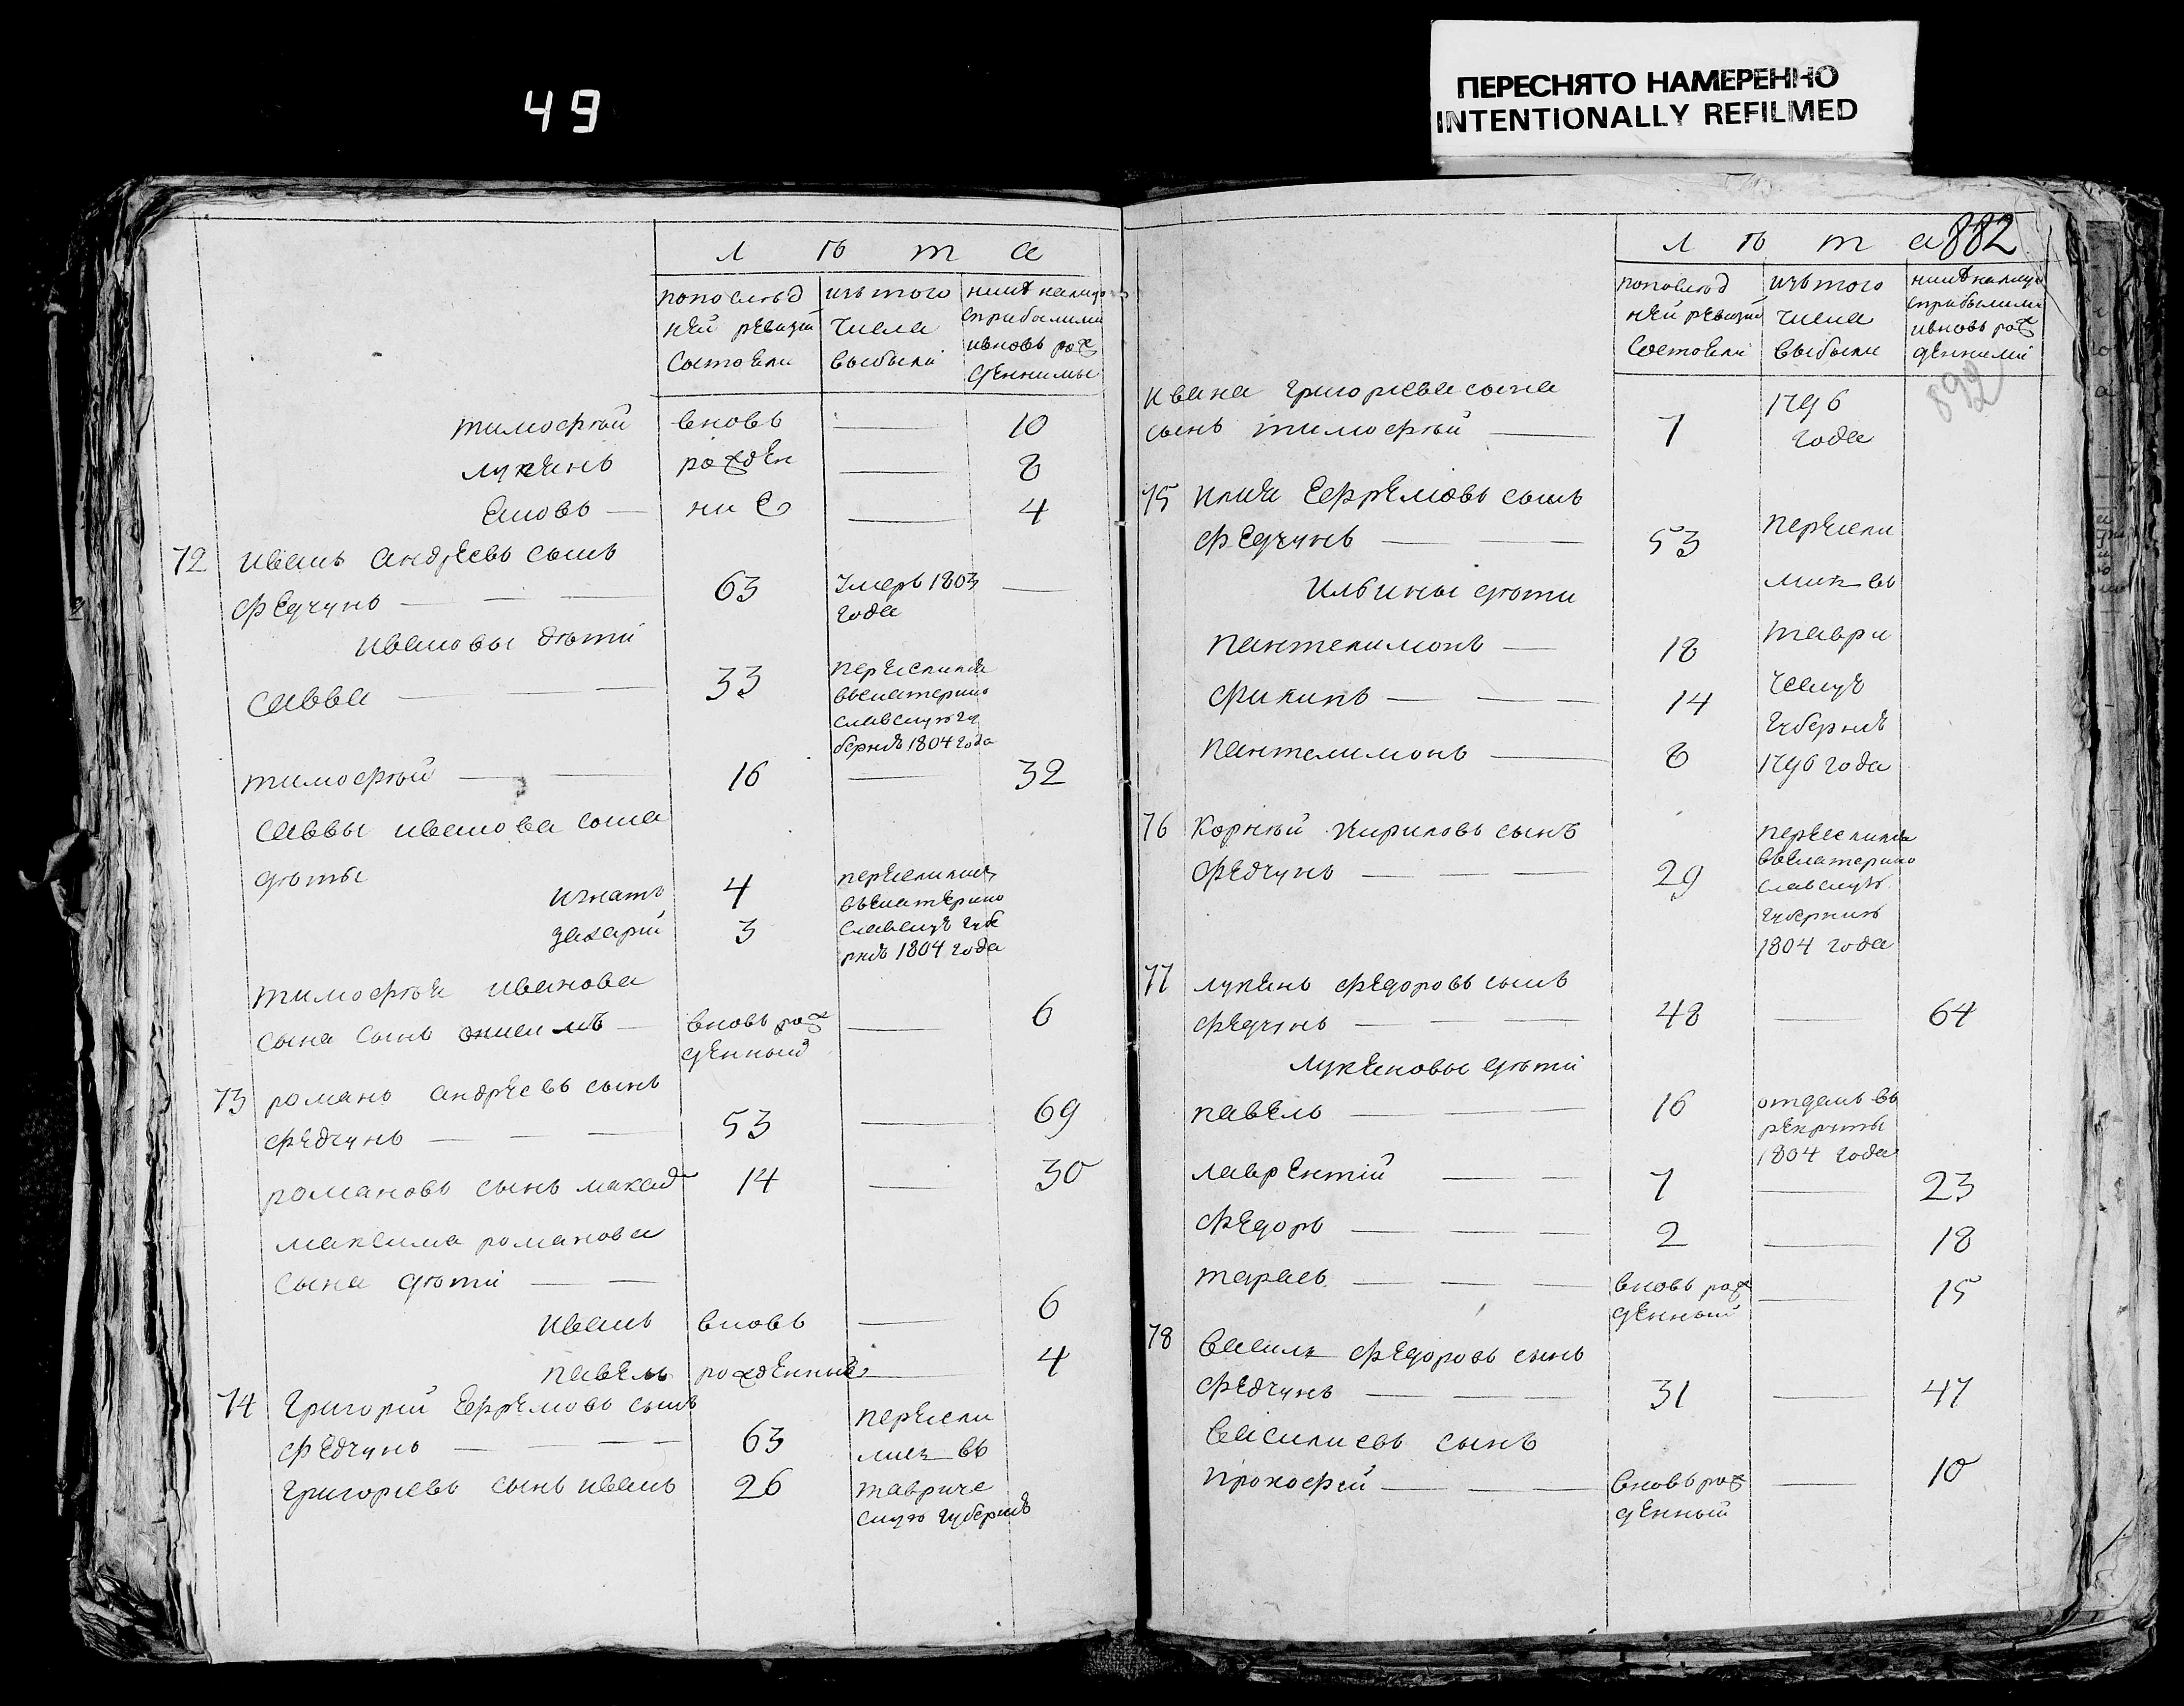 49
ПЕРЕСНЯТО НАМЕРЕННО
INTENTIONALLY REFILMED
Л Ѣ т а
попослѣд
ней ревизіи
Состоели
изъ того
числа
выбыли
нынѣ налицо
сприбылыми
ивновь рож
денными
тимофѣй вновь — 10
лукьянъ рожден — 8
— ни е — 4
72 Иванъ андреевъ сынъ
Федчунъ — 63 Умеръ 1803 —
года
Ивановы дѣти
Савва — 33 переселился
вЪекатерино
славскую гу
бернѣ 1804 года
тимофѣй — 16 — 32
Саввы иванова сына
дѣты
Игнатъ 4 переселились
захарій 3 вЪекатерино
славскую губе
рнѣ 1804 года
тимофѣя иванова
сына сынъ анисимъ — вновь рож — 6
денный
73 романъ андреевъ сынъ
Федчунъ — 53 — 69
романовъ сынъ максим 14 — 30
максима романова
сына дѣти —
иванъ вновь — 6
павелъ рожденные — 4
74 Григорій Ефремовъ сынъ
Федчунъ — 63 пересели
лися въ
Григорьевъ сынъ иванъ 26 тавриче
скую губернѣ
882
Л Ѣ т а
попослѣд
ней ревизіи
Состоели
изъ того
числа
выбыли
нынѣ налицо
сприбылыми
ивновь рож
денными
892
Ивана григорьева сына
сынъ тимофѣй — 7 1796
года
75 Илия Ефремовъ сынъ
Федчунъ — 53 пересели
Ильины дѣти лися въ
пантелимонъ — 18 таври
Филипъ — 14 ческую
губернѣ
пантелимонъ — 8 1796 года
76 Корнѣй Кириловъ сынъ
Федчунъ — 29 переселился
вЪекатерино
славскую
губернию
1804 года
77 лукьянъ Федоровъ сынъ
Федчунъ — 48 — 64
лукьяновы дѣти
павелъ — 16 отданъ въ
рекруты
1804 года
лаврентій — 7 — 23
Федоръ — 2 — 18
тарасъ — вновь рож — 15
денный
78 Василь Федоровъ сынъ
Федчунъ — 31 — 47
Василиевъ сынъ
прокофей — вновь рож — 10
денный